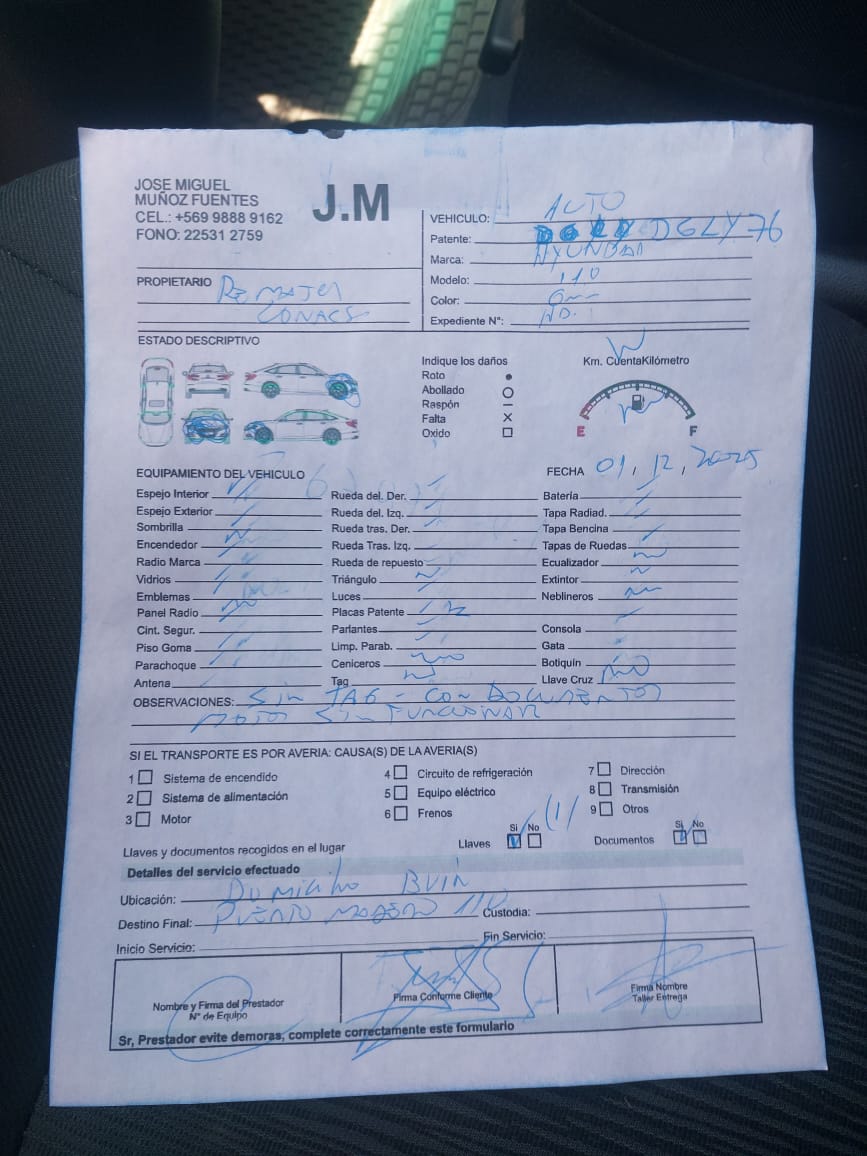 JOSE MIGUEL
MUÑOZ FUENTES
CEL.: +569 9888 9162
FONO: 22531 2759
J.M
VEHICULO: AUTO
Patente: DGLY76
Marca: HYUNDAI
Modelo: 110
Color:
Expediente N°: NO.
PROPIETARIO
CONACS
ESTADO DESCRIPTIVO
Indique los daños
Roto
Abollado
Raspón
Falta
Oxido
Km. CuentaKilómetro
E F
EQUIPAMIENTO DEL VEHICULO
FECHA 01, 12, 2025
Espejo Interior Rueda del. Der. Batería
Espejo Exterior Rueda del. Izq. Tapa Radiad.
Sombrilla Rueda tras. Der. Tapa Bencina
Encendedor Rueda Tras. Izq. Tapas de Ruedas
Radio Marca Rueda de repuesto Ecualizador
Vidrios Triángulo Extintor
Emblemas Luces Neblineros
Panel Radio Placas Patente
Cint. Segur. Parlantes Consola
Piso Goma Limp. Parab. Gata
Parachoque Ceniceros Botiquín
Antena Tag Llave Cruz
OBSERVACIONES: SIN TAG - CON DOCUMENTOS
MOTOR SIN FUNCIONAR
SI EL TRANSPORTE ES POR AVERIA: CAUSA(S) DE LA AVERIA(S)
1 Sistema de encendido 4 Circuito de refrigeración 7 Dirección
2 Sistema de alimentación 5 Equipo eléctrico 8 Transmisión
3 Motor 6 Frenos 9 Otros
Llaves y documentos recogidos en el lugar Llaves Si No Documentos Si No
Detalles del servicio efectuado
Ubicación: Domicilio BUIN
Destino Final: PUERTO MADERO 110 Custodia:
Inicio Servicio: Fin Servicio:
Nombre y Firma del Prestador
N° de Equipo
Firma Conforme Cliente
Firma Nombre
Taller Entrega
Sr, Prestador evite demoras, complete correctamente este formulario